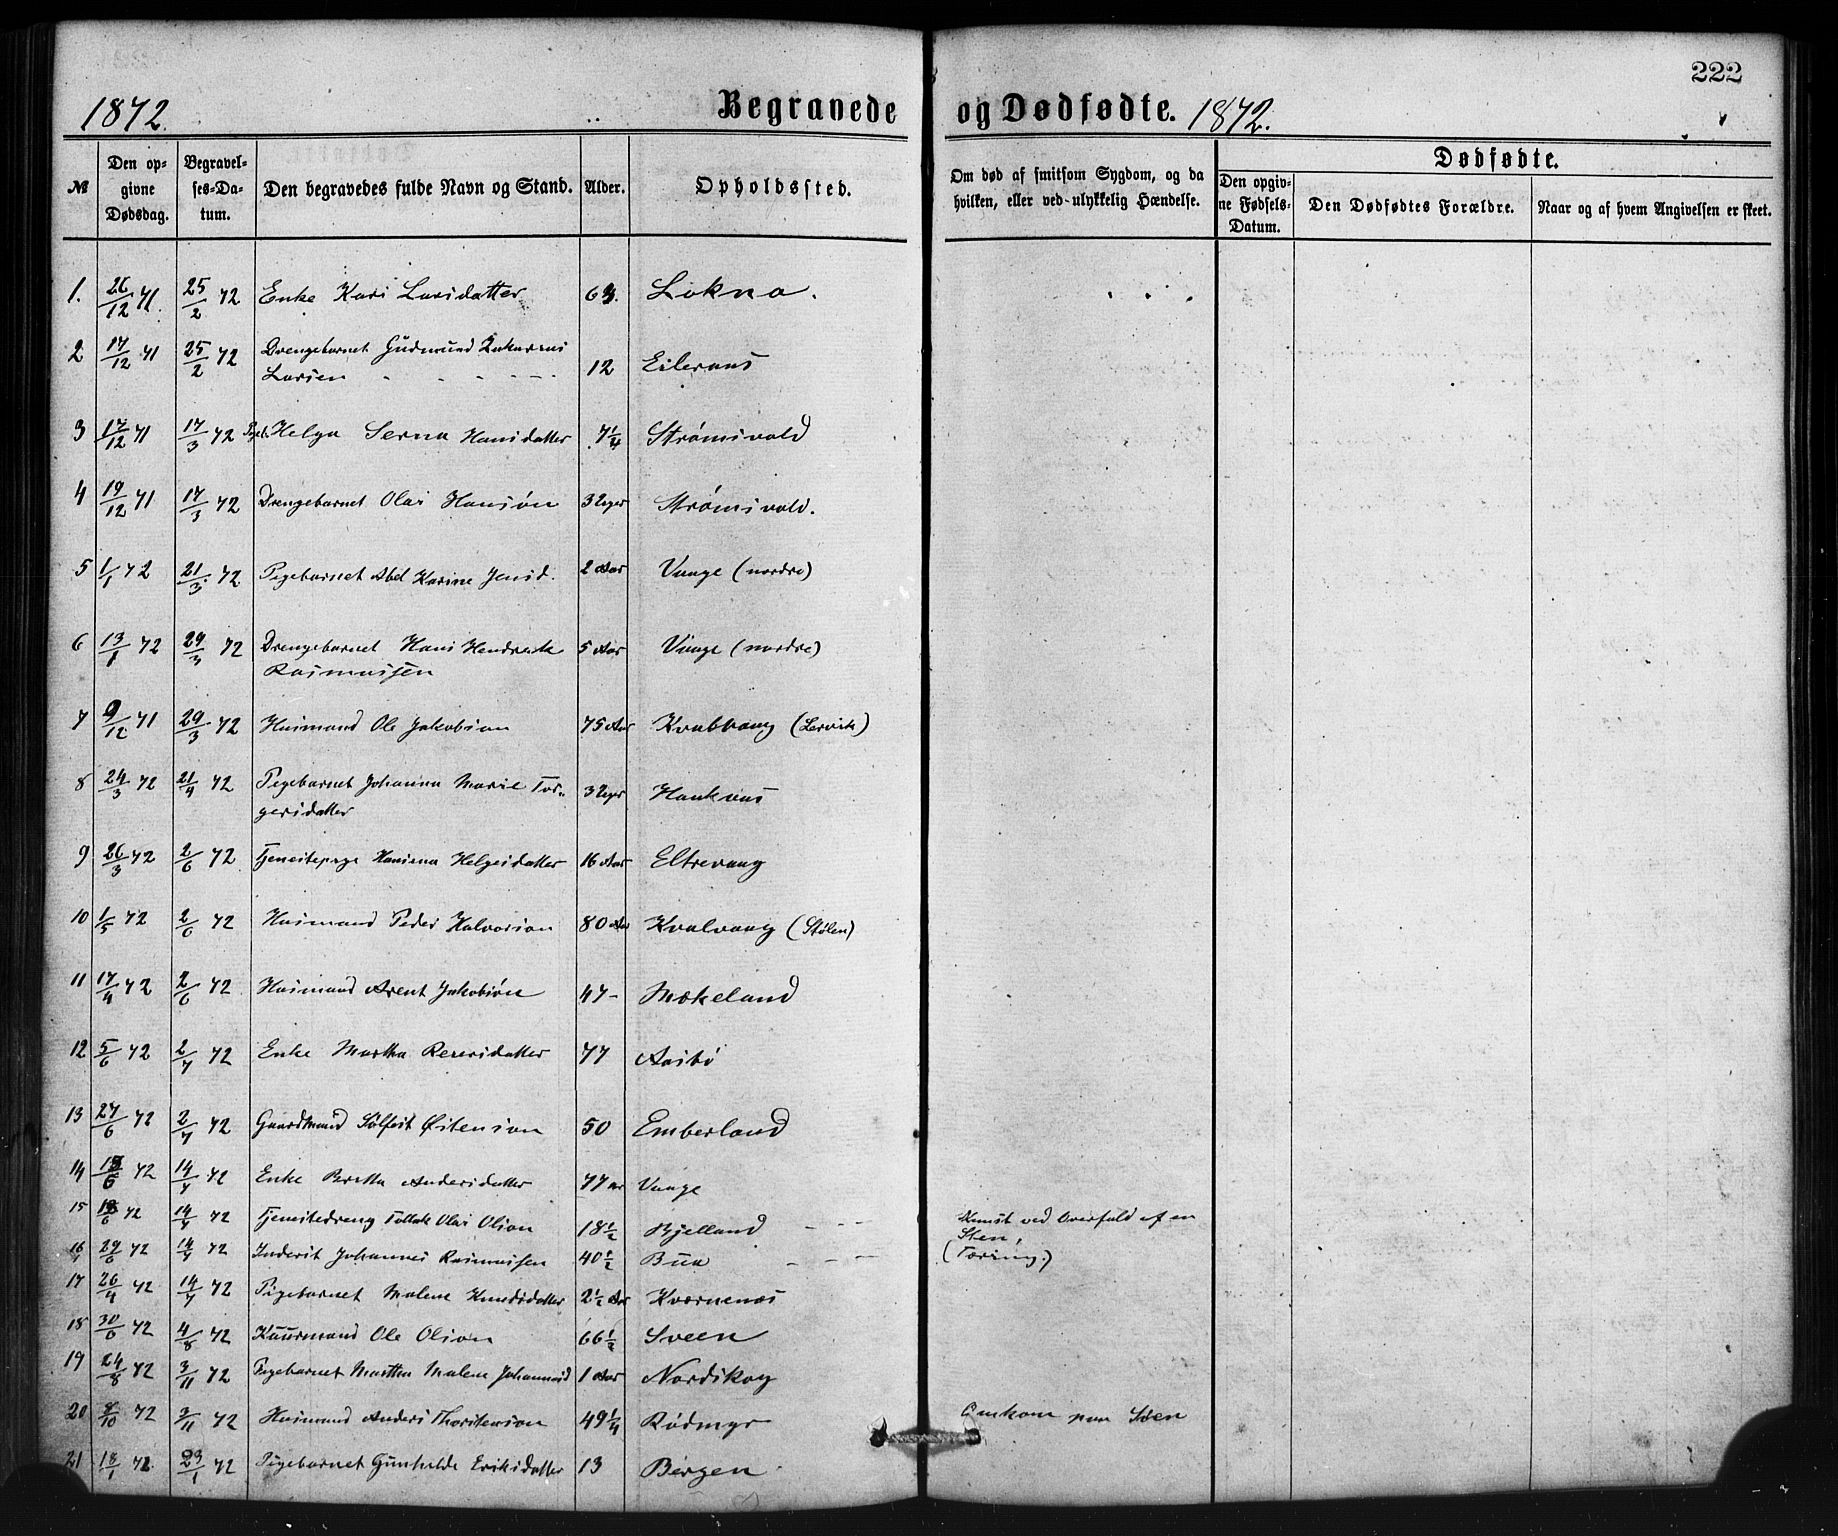 222
1872.
Begravede
og Dødfødte. 1872.
№
Den opgivne Dødsdag.
Begravelses-Datum.
Den begravedes fulde Navn og Stand.
Alder.
Opholdssted.
Om død af smitsom Sygdom, og da hvilken, eller ved ulykkelig Hændelse.
Dødfødte.
Den opgivne Fødsels-Datum.
Den Dødfødtes Forældre.
Naar og af hvem Angivelsen er skeet.
1. 26/12 71. 25/2 72 Enke Kari Larsdatter Lokna.
2 17/12 71 25/2 72 Drengebarnet Gudmund
Larsen 12
3 17/12 71 17/3 72 Helga Serna Hansdatter 7 1/4 Strømsvold
4 19/12 71 17/3 72 Drengebarnet Olai Hansøn 3 Uger Strømsvold.
5 1/1 72 21/3 72 Pigebarnet Abel Karine Jensd. 2 Aar Vaage (nordre)
6 13/1 72 29/3 72 Drengebarnet Hans Hendreck 5 Aar Vaage (nordre)
Rasmussen
7 9/12 71 29/3 72 Husmand Ole Jakobson 75 Aar (Lervik)
8 24/3 72 21/4 72 Pigebarnet Johanna Marie Tor-
gersdatter 3 Uger Hauknæs
9 26/3 72 2/6 72 Tjenestepige Hansena Helgesdatter 16 Aar Eltrevaag
10 1/5 72 2/6 72 Husmand Peder Halvorson 80 Aar Kvalvaag (Stølen)
11 17/4 72 2/6 72 Husmand Arent Jakobsøn 47 - Mækeland
12 5/6 72 2/7 72 Enke Martha 77 Aasbø
13 27/6 72 2/7 72 Gaardmand Sølfest Østenson 50 Emberland
14 72 14/7 72 Enke Beretha Andersdatter 77 Vaage
15 72 14/7 72 Tjenestedreng Tollak Olai Olson 18 1/2 Bjelland - - - Knust ved Overfald af en
Sten,
16 29/6 72 14/7 72 Inderst Johannes Rasmussen 40 1/2 Bua - - - (Tæring.)
17 26/4 72 14/7 72 Pigebarnet Malene Knudsdatter 2 1/2 Aar Kværnenæs
18 30/6 72 4/8 72 Kaarmand Ole Olson 66 1/2 Sveen
19 24/8 72 3/11 72 Pigebarnet Martha Malene Johannesd 1 Aar Nordskog
20 8/10 72 3/11 72 Husmand Anders Thorsteson 49 1/4 Rødmyr Omkom paa Søen
21 18/1 72 23/1 72 Pigebarnet Gunhilde Eriksdatter 13 Bergen